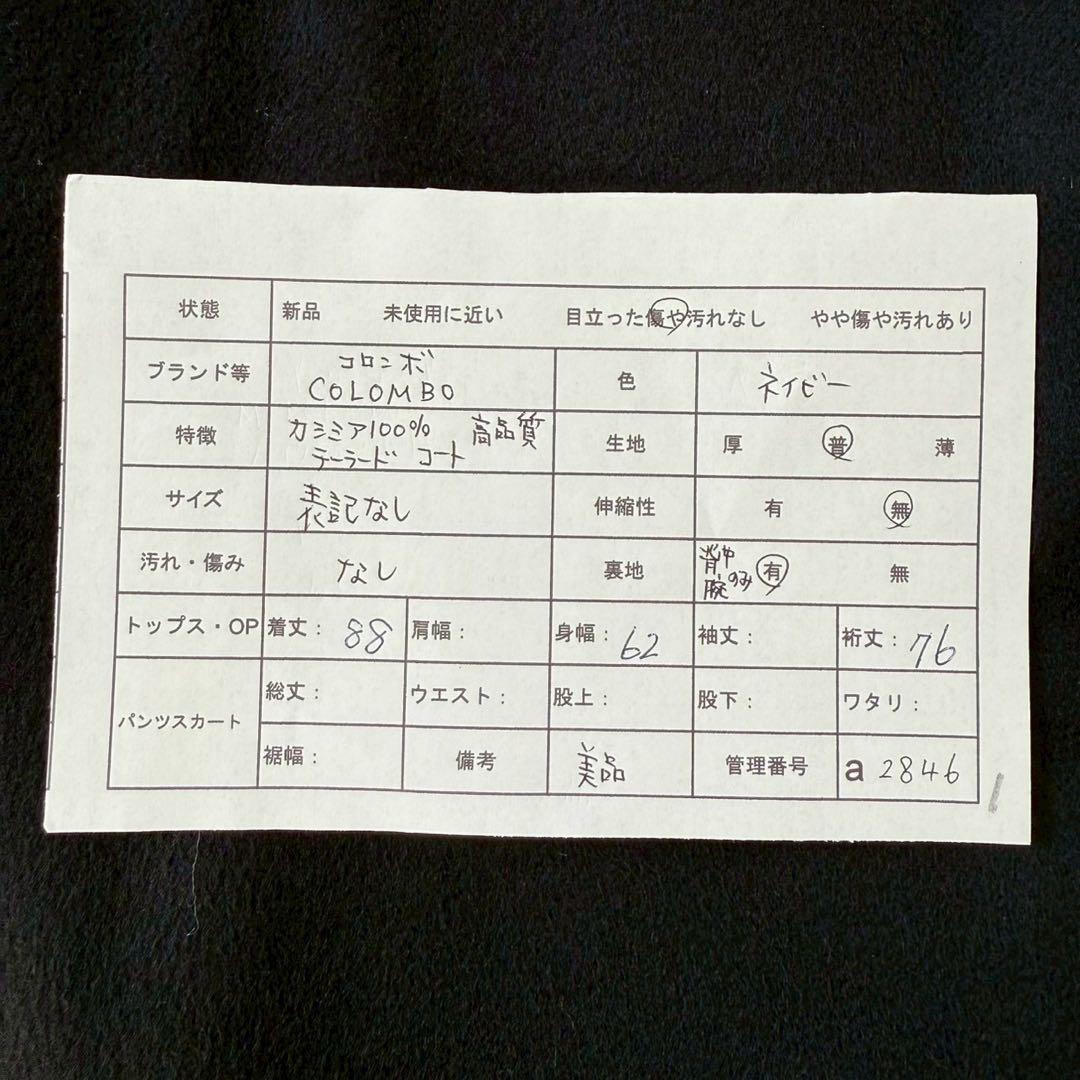 状態 新品 未使用に近い 目立った傷や汚れなし やや傷や汚れあり
ブランド等 コロンボ 色 ネイビー
COLOMBO
特徴 カシミア100% 高品質 生地 厚 普 薄
テーラード コート
サイズ 表記なし 伸縮性 有 無
汚れ・傷み なし 裏地 背中 有 無
腕のみ
トップス・OP 着丈： 88 肩幅： 身幅： 62 袖丈： 裄丈： 76
パンツスカート 総丈： ウエスト： 股上： 股下： ワタリ：
裾幅： 備考 美品 管理番号 a 2846